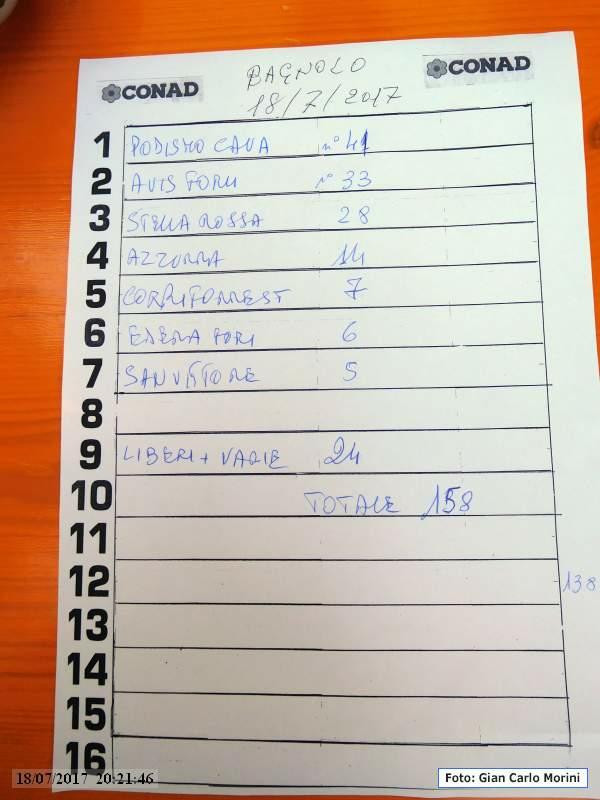 CONAD BAGNOLO CONAD
18/7/2017
1 PODISMO CAVA n° 41
2 AVIS FORLI n° 33
3 STELLA ROSSA 28
4 AZZURRA 14
5 CORRIFORREST 7
6 EDERA FORI 6
7 SAN VITTORE 5
8
9 LIBERI + VARIE 24
10 TOTALE 158
11
12 138
13
14
15
16
18/07/2017 20:21:46
Foto: Gian Carlo Morini